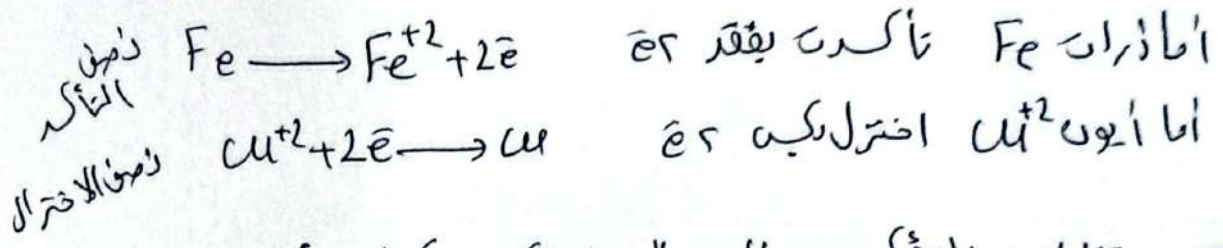 أما ذرات Fe تأكسدت بفقد 2ē Fe → Fe⁺² + 2ē نصف التأكسد
أما أيون Cu⁺² اختزل بكسب 2ē Cu⁺² + 2ē → Cu نصف الاختزال